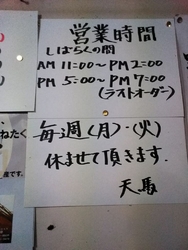 営業時間
しばらくの間
AM 11:00～PM 2:00
PM 5:00～PM 7:00
(ラストオーダー)
毎週(月)・(火)
休ませて頂きます.
天馬